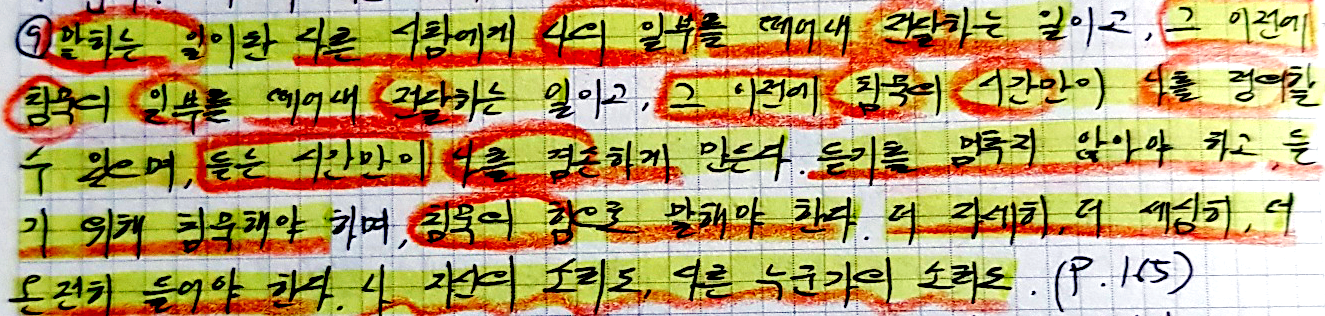 ⑨ 말하는 일이란 다른 사람에게 나의 일부를 떼어내 전달하는 일이고, 그 이전에
침묵의 일부를 떼어내 전달하는 일이고, 그 이전에 침묵의 시간만이 나를 정여할
수 있으며, 듣는 시간만이 나를 겸손하게 만든다. 듣기를 멈추지 않아야 하고, 듣
기 위해 침묵해야 하며, 침묵의 힘으로 말해야 한다. 더 자세히, 더 세심히, 더
온전히 들어야 한다. 나 자신의 소리도, 다른 누군가의 소리도. (P. 165)